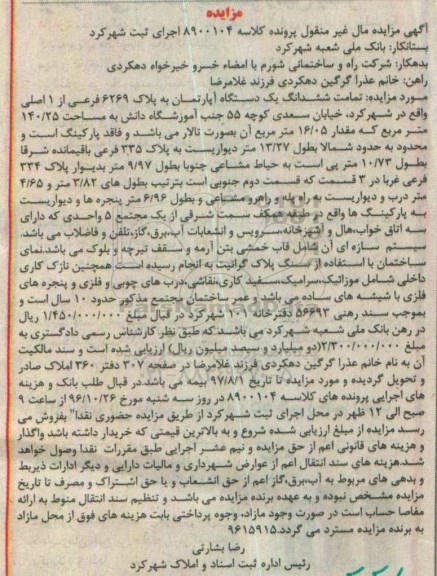 مزایده
آگهی مزایده مال غیر منقول پرونده کلاسه ۸۹۰۰۱۰۴ اجرای ثبت شهرکرد
بستانکار: بانک ملی شعبه شهرکرد
بدهکار: شرکت راه و ساختمانی شورم با امضاء خسرو خیرخواه دهکردی
راهن: خانم عذرا گرگین دهکردی فرزند غلامرضا
مورد مزایده: تمامت ششدانگ یک دستگاه آپارتمان به پلاک ۶۲۶۹ فرعی از ۱ اصلی
واقع در شهرکرد، خیابان سعدی کوچه ۵۵ جنب آموزشگاه دانش به مساحت ۱۴۰/۲۵
متر مربع که مقدار ۱۶/۰۵ متر مربع آن بصورت تالار می باشد و فاقد پارکینگ است و
محدود به حدود شمالا بطول ۱۳/۲۷ متر دیواریست به پلاک ۳۳۵ فرعی باقیمانده شرقا
بطول ۱۰/۷۳ متر پی است به حیاط مشاعی جنوبا بطول ۹/۹۷ متر بدیوار پلاک ۳۳۴
فرعی غربا در ۳ قسمت که قسمت دوم جنوبی است بترتیب بطول های ۳/۸۲ متر و ۴/۶۵
متر درب و دیواریست به راه پله و راهرو مشاعی و بطول ۶/۹۶ متر پنجره ها و دیواریست
به پارکینگ ها واقع در طبقه همکف سمت شرقی از یک مجتمع ۵ واحدی که دارای
سه اتاق خواب،هال و آشپزخانه،سرویس و انشعابات آب،برق،گاز،تلفن و فاضلاب می باشد.
سیستم سازه ای آن شامل قاب خمشی بتن آرمه و سقف تیرچه و بلوک می باشد.نمای
ساختمان با استفاده از سنگ پلاک گرانیت به انجام رسیده است همچنین نازک کاری
داخلی شامل موزائیک،سرامیک،سفید کاری،نقاشی،درب های چوبی و فلزی و پنجره های
فلزی با شیشه های ساده می باشد و عمر ساختمان مجتمع مذکور حدود ۱۰ سال است و
بموجب سند رهنی ۵۶۶۹۳ دفترخانه ۱۰۱ شهرکرد در قبال مبلغ ۱/۴۵۰/۰۰۰/۰۰۰ ریال
در رهن بانک ملی شعبه شهرکرد می باشد که طبق نظر کارشناس رسمی دادگستری به
مبلغ ۲/۳۰۰/۰۰۰/۰۰۰(دو میلیارد و سیصد میلیون ریال) ارزیابی شده است و سند مالکیت
آن به نام خانم عذرا گرگین دهکردی فرزند غلامرضا در صفحه ۳۰۷ دفتر ۳۶۰ املاک صادر
و تحویل گردیده و مورد مزایده تا تاریخ ۹۷/۸/۱ بیمه می باشد.در قبال طلب بانک و هزینه
های اجرایی پرونده های کلاسه ۸۹۰۰۱۰۴ در روز سه شنبه مورخ ۹۶/۱۰/۲۶ از ساعت ۹
صبح الی ۱۲ ظهر در محل اجرای ثبت شهرکرد از طریق مزایده حضوری نقدا" بفروش می
رسد مزایده از مبلغ ارزیابی شده شروع و به بالاترین قیمتی که خریدار داشته باشد واگذار
و هزینه های قانونی اعم از حق مزایده و نیم عشر اجرایی طبق مقررات نقدا وصول خواهد
شد.هزینه های سند انتقال اعم از عوارض شهرداری و مالیات دارایی و دیگر ادارات ذیربط
و بدهی های مربوط به آب،برق،گاز اعم از حق انشعاب و یا حق اشتراک و مصرف تا تاریخ
مزایده مشخص نبوده و به عهده برنده مزایده می باشد و تنظیم سند انتقال منوط به ارائه
مفاصا حساب است در صورت وجود مازاد، وجوه پرداختی بابت هزینه های فوق از محل مازاد
به برنده مزایده مسترد می گردد.۹۶۱۵۹۱۵
رضا بشارتی
رئیس اداره ثبت اسناد و املاک شهرکرد